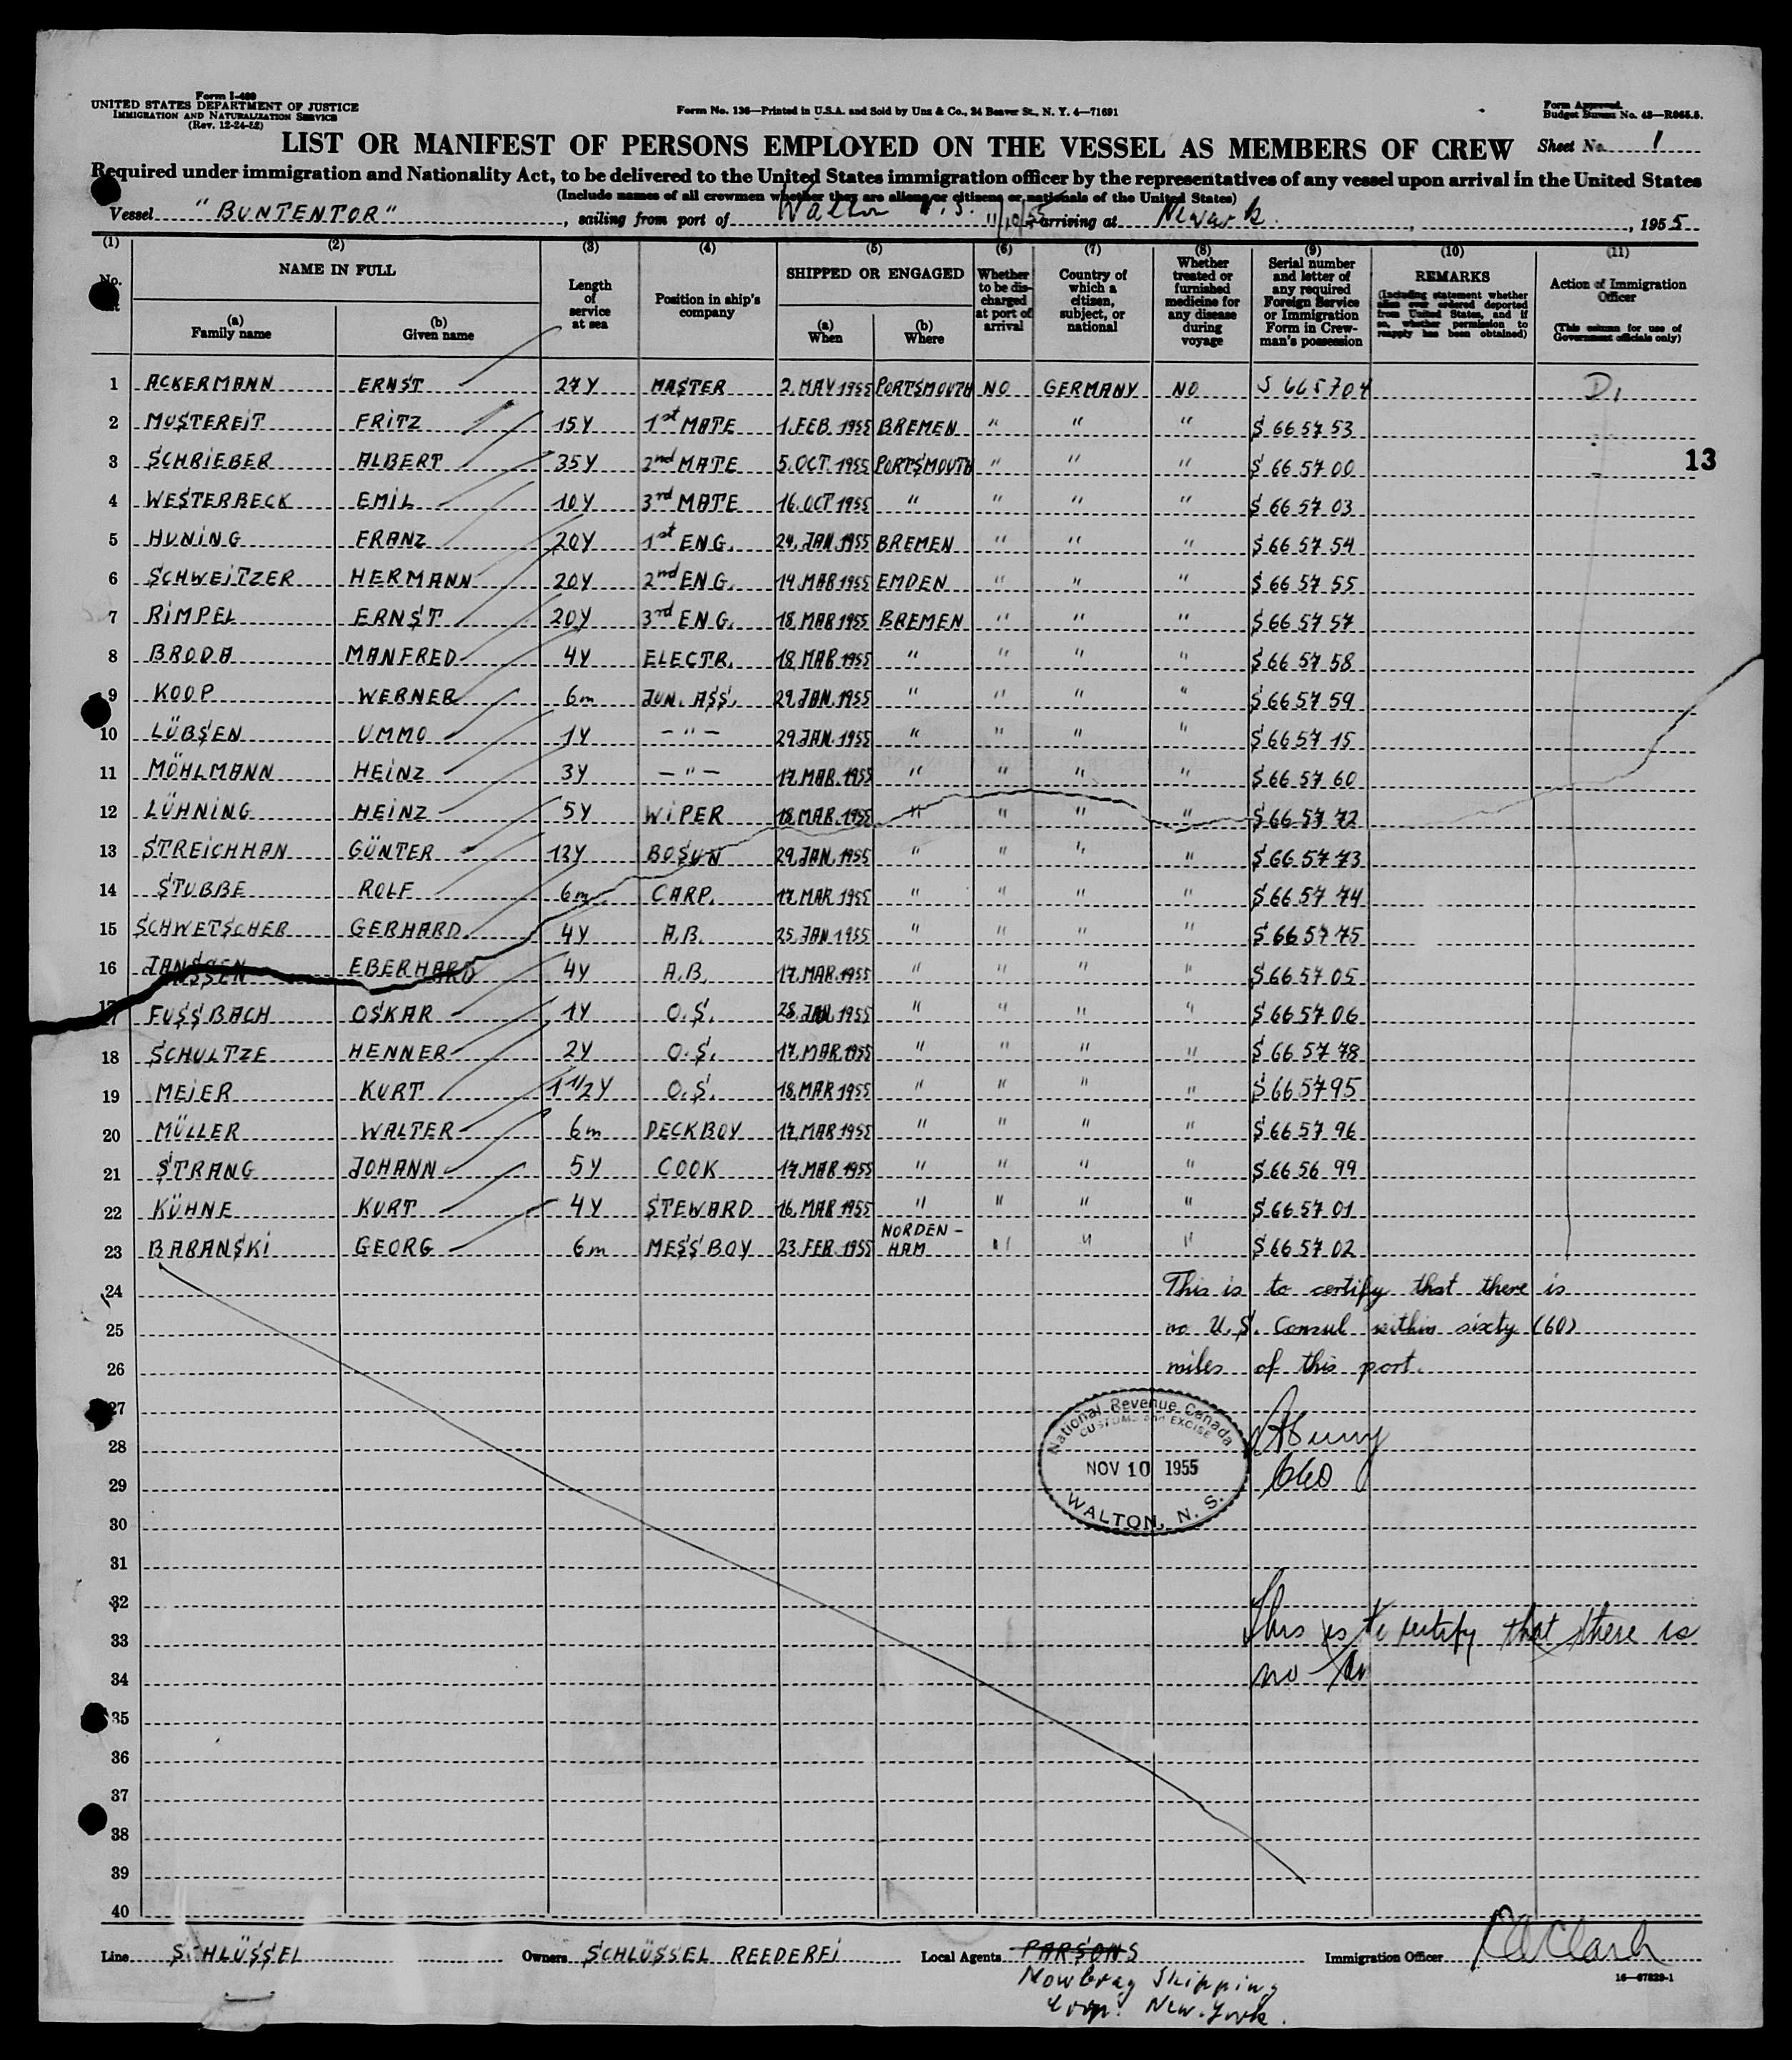 Form I-489
UNITED STATES DEPARTMENT OF JUSTICE
IMMIGRATION AND NATURALIZATION SERVICE
(Rev. 12-24-52)
Form No. 136—Printed in U.S.A. and Sold by Unz & Co., 24 Beaver St., N. Y. 4—71691
Form Approved.
Budget Bureau No. 43—R065.5.
LIST OR MANIFEST OF PERSONS EMPLOYED ON THE VESSEL AS MEMBERS OF CREW Sheet No. 1
Required under immigration and Nationality Act, to be delivered to the United States immigration officer by the representatives of any vessel upon arrival in the United States
(Include names of all crewmen whether they are aliens or citizens or nationals of the United States)
Vessel "BUNTENTOR", sailing from port of Walton N.S. 11/10/55 arriving at Newark, 1955
(1) (2) (3) (4) (5) (6) (7) (8) (9) (10) (11)
No. NAME IN FULL Length of service at sea Position in ship's company SHIPPED OR ENGAGED Whether to be discharged at port of arrival Country of which a citizen, subject, or national Whether treated or furnished medicine for any disease during voyage Serial number and letter of any required Foreign Service or Immigration Form in Crewman's possession REMARKS (Including statement whether alien ever ordered deported from United States, and if so, whether permission to reapply has been obtained) Action of Immigration Officer (This column for use of Government officials only)
(a) Family name (b) Given name (a) When (b) Where
1 ACKERMANN ERNST 27Y MASTER 2. MAY 1955 PORTSMOUTH NO GERMANY NO S 665704 D1
2 MUSTEREIT FRITZ 15Y 1st MATE 1. FEB. 1955 BREMEN " " " S 665753
3 SCHRIEBER ALBERT 35Y 2nd MATE 5. OCT. 1955 PORTSMOUTH " " " S 665700
13
4 WESTERBECK EMIL 10Y 3rd MATE 16. OCT 1955 " " " " S 665703
5 HUNING FRANZ 20Y 1st ENG. 24. JAN. 1955 BREMEN " " " S 665754
6 SCHWEITZER HERMANN 20Y 2nd ENG. 14. MAR 1955 EMDEN " " " S 665755
7 RIMPEL ERNST 20Y 3rd ENG. 18. MAR 1955 BREMEN " " " S 665757
8 BRODA MANFRED 4Y ELECTR. 18. MAR. 1955 " " " " S 665758
9 KOOP WERNER 6m JUN. ASS. 29. JAN. 1955 " " " " S 665759
10 LÜBSEN UMMO 1Y — " — 29. JAN. 1955 " " " " S 665715
11 MÖHLMANN HEINZ 3Y — " — 17. MAR. 1955 " " " " S 665760
12 LÜHNING HEINZ 5Y WIPER 18. MAR. 1955 " " " " S 665772
13 STREICHHAN GÜNTER 13Y BOSUN 29. JAN. 1955 " " " " S 665773
14 STUBBE ROLF 6m CARP. 17. MAR 1955 " " " " S 665774
15 SCHWETSCHER GERHARD 4Y A.B. 25. JAN 1955 " " " " S 665775
16 JANSSEN EBERHARD 4Y A.B. 17. MAR. 1955 " " " " S 665705
17 FUSSBACH OSKAR 1Y O.S. 28. JAN. 1955 " " " " S 665706
18 SCHULTZE HENNER 2Y O.S. 17. MAR 1955 " " " " S 665778
19 MEIER KURT 1 1/2 Y O.S. 18. MAR 1955 " " " " S 665795
20 MÜLLER WALTER 6m DECKBOY 17. MAR 1955 " " " " S 665796
21 STRANG JOHANN 5Y COOK 17. MAR 1955 " " " " S 665699
22 KÜHNE KURT 4Y STEWARD 16. MAR 1955 " " " " S 665701
23 BABANSKI GEORG 6m MESSBOY 23. FEB. 1955 NORDEN-HAM " " " S 665702
24 This is to certify that there is
25 no U.S. Consul within sixty (60)
26 miles of this port.
27
National Revenue Canada
CUSTOMS and EXCISE
28
NOV 10 1955
29
WALTON, N. S.
30
31
32
33 This is to certify that there is
34 no
35
36
37
38
39
40
Line SCHLÜSSEL Owners SCHLÜSSEL REEDEREI Local Agents PARSONS Immigration Officer
Mowbray Shipping
Corp. New-York.
16—67829-1